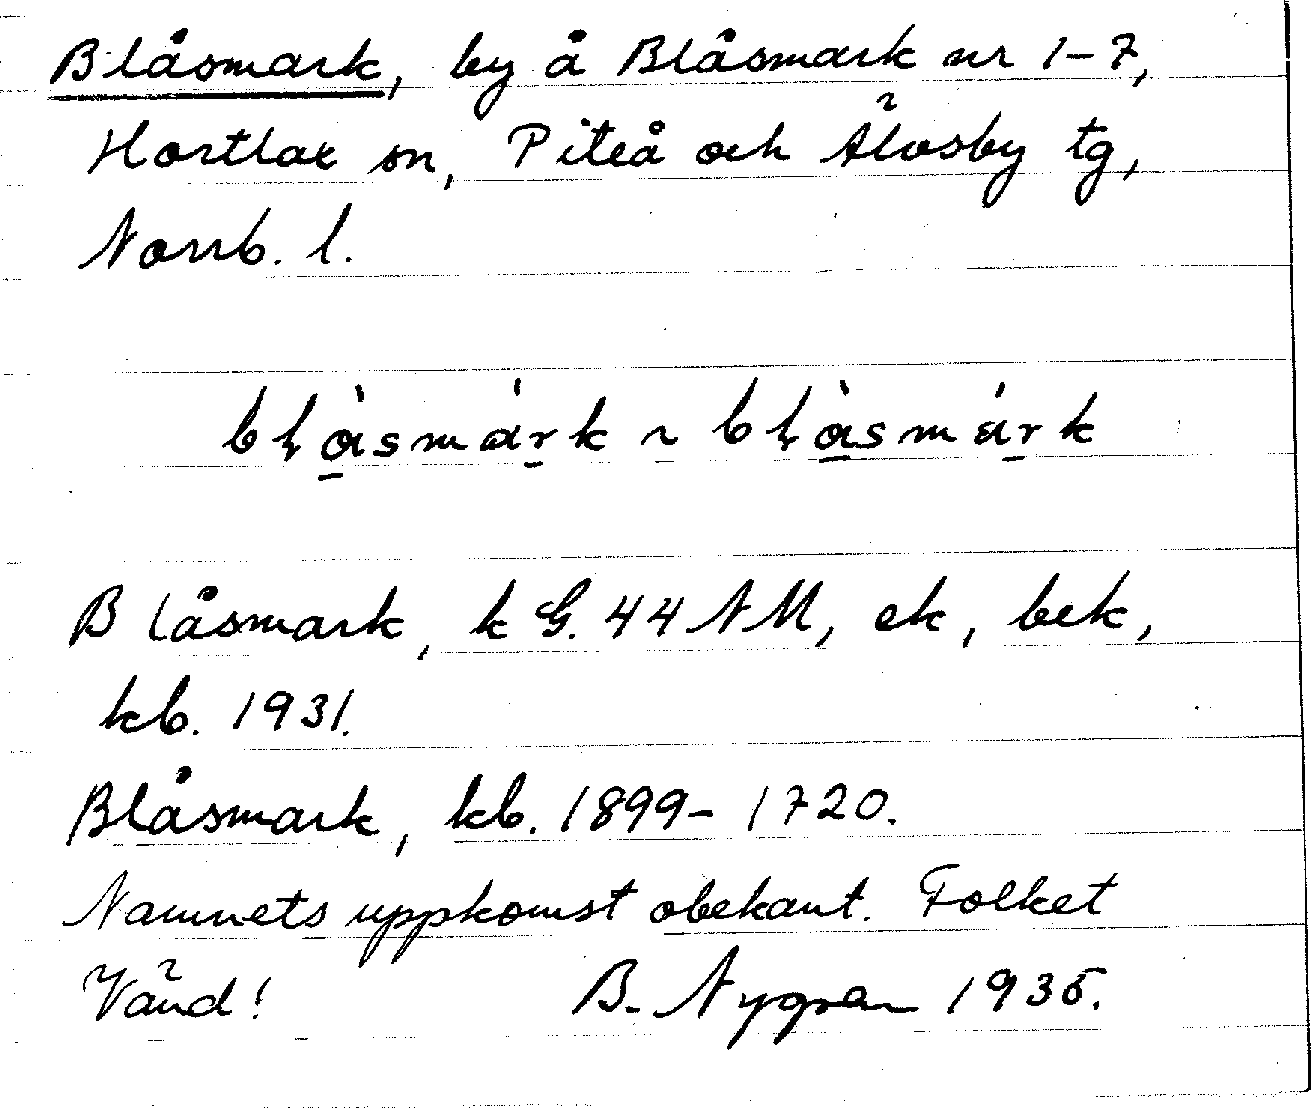 Blåsmark, by å Blåsmark nr 1-7,
Hortlax sn, Piteå och Älvsby tg,
Norrb. l.
bḷàsmárk ~ bḷàsmárk
Blåsmark, k G. 44 NM, ek, bek,
kb. 1931.
Blåsmark, kb. 1899-1720.
Namnets uppkomst obekant. Folket
Vänd! B. Nygren 1935.